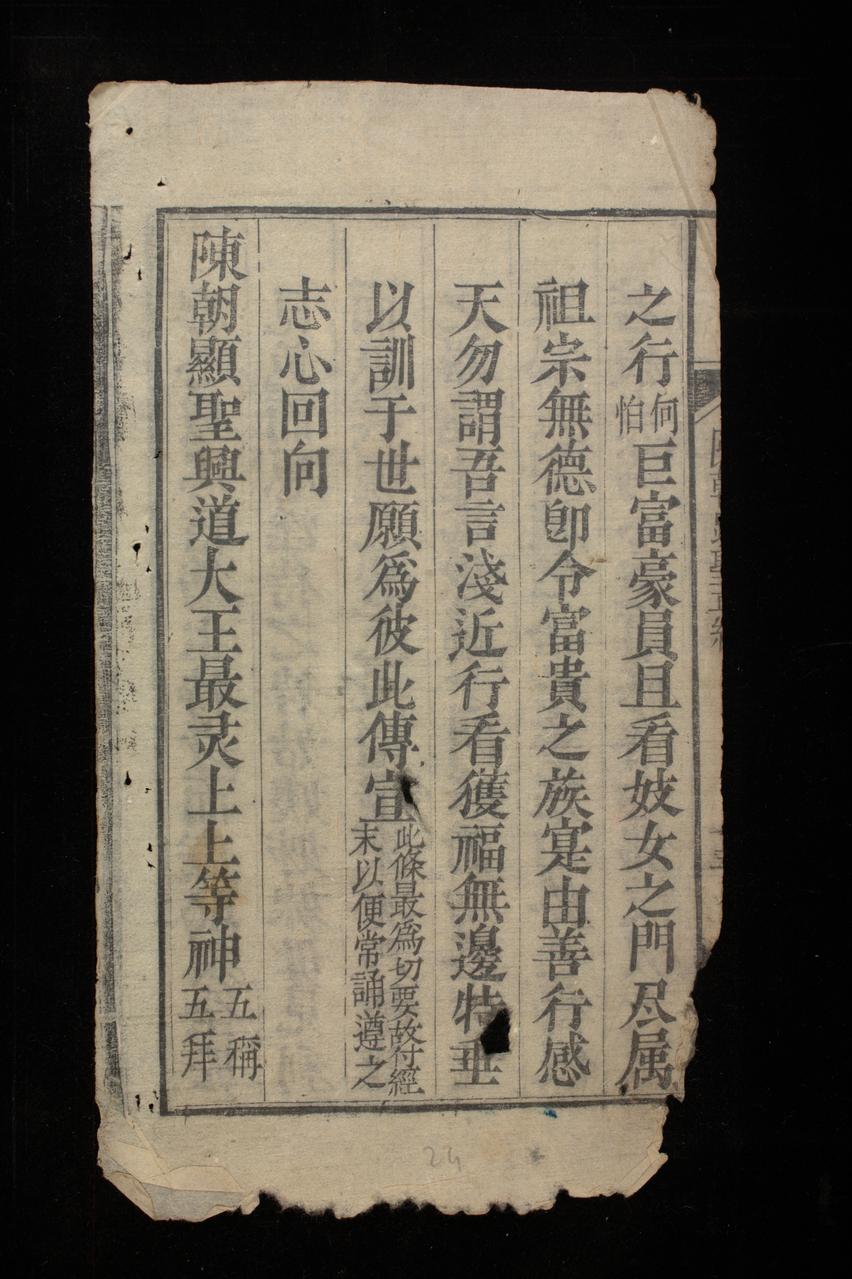 之行何怕巨富豪員且看妓女之門尽属
祖宗無德即令富貴之族寔由善行感
天勿謂吾言淺近行看獲福無邊特垂
以訓于世願爲彼此傳宣此條最爲切要故付經末以便常誦遵之
志心回向
陳朝顯聖興道大王最灵上上等神五稱五拜
24